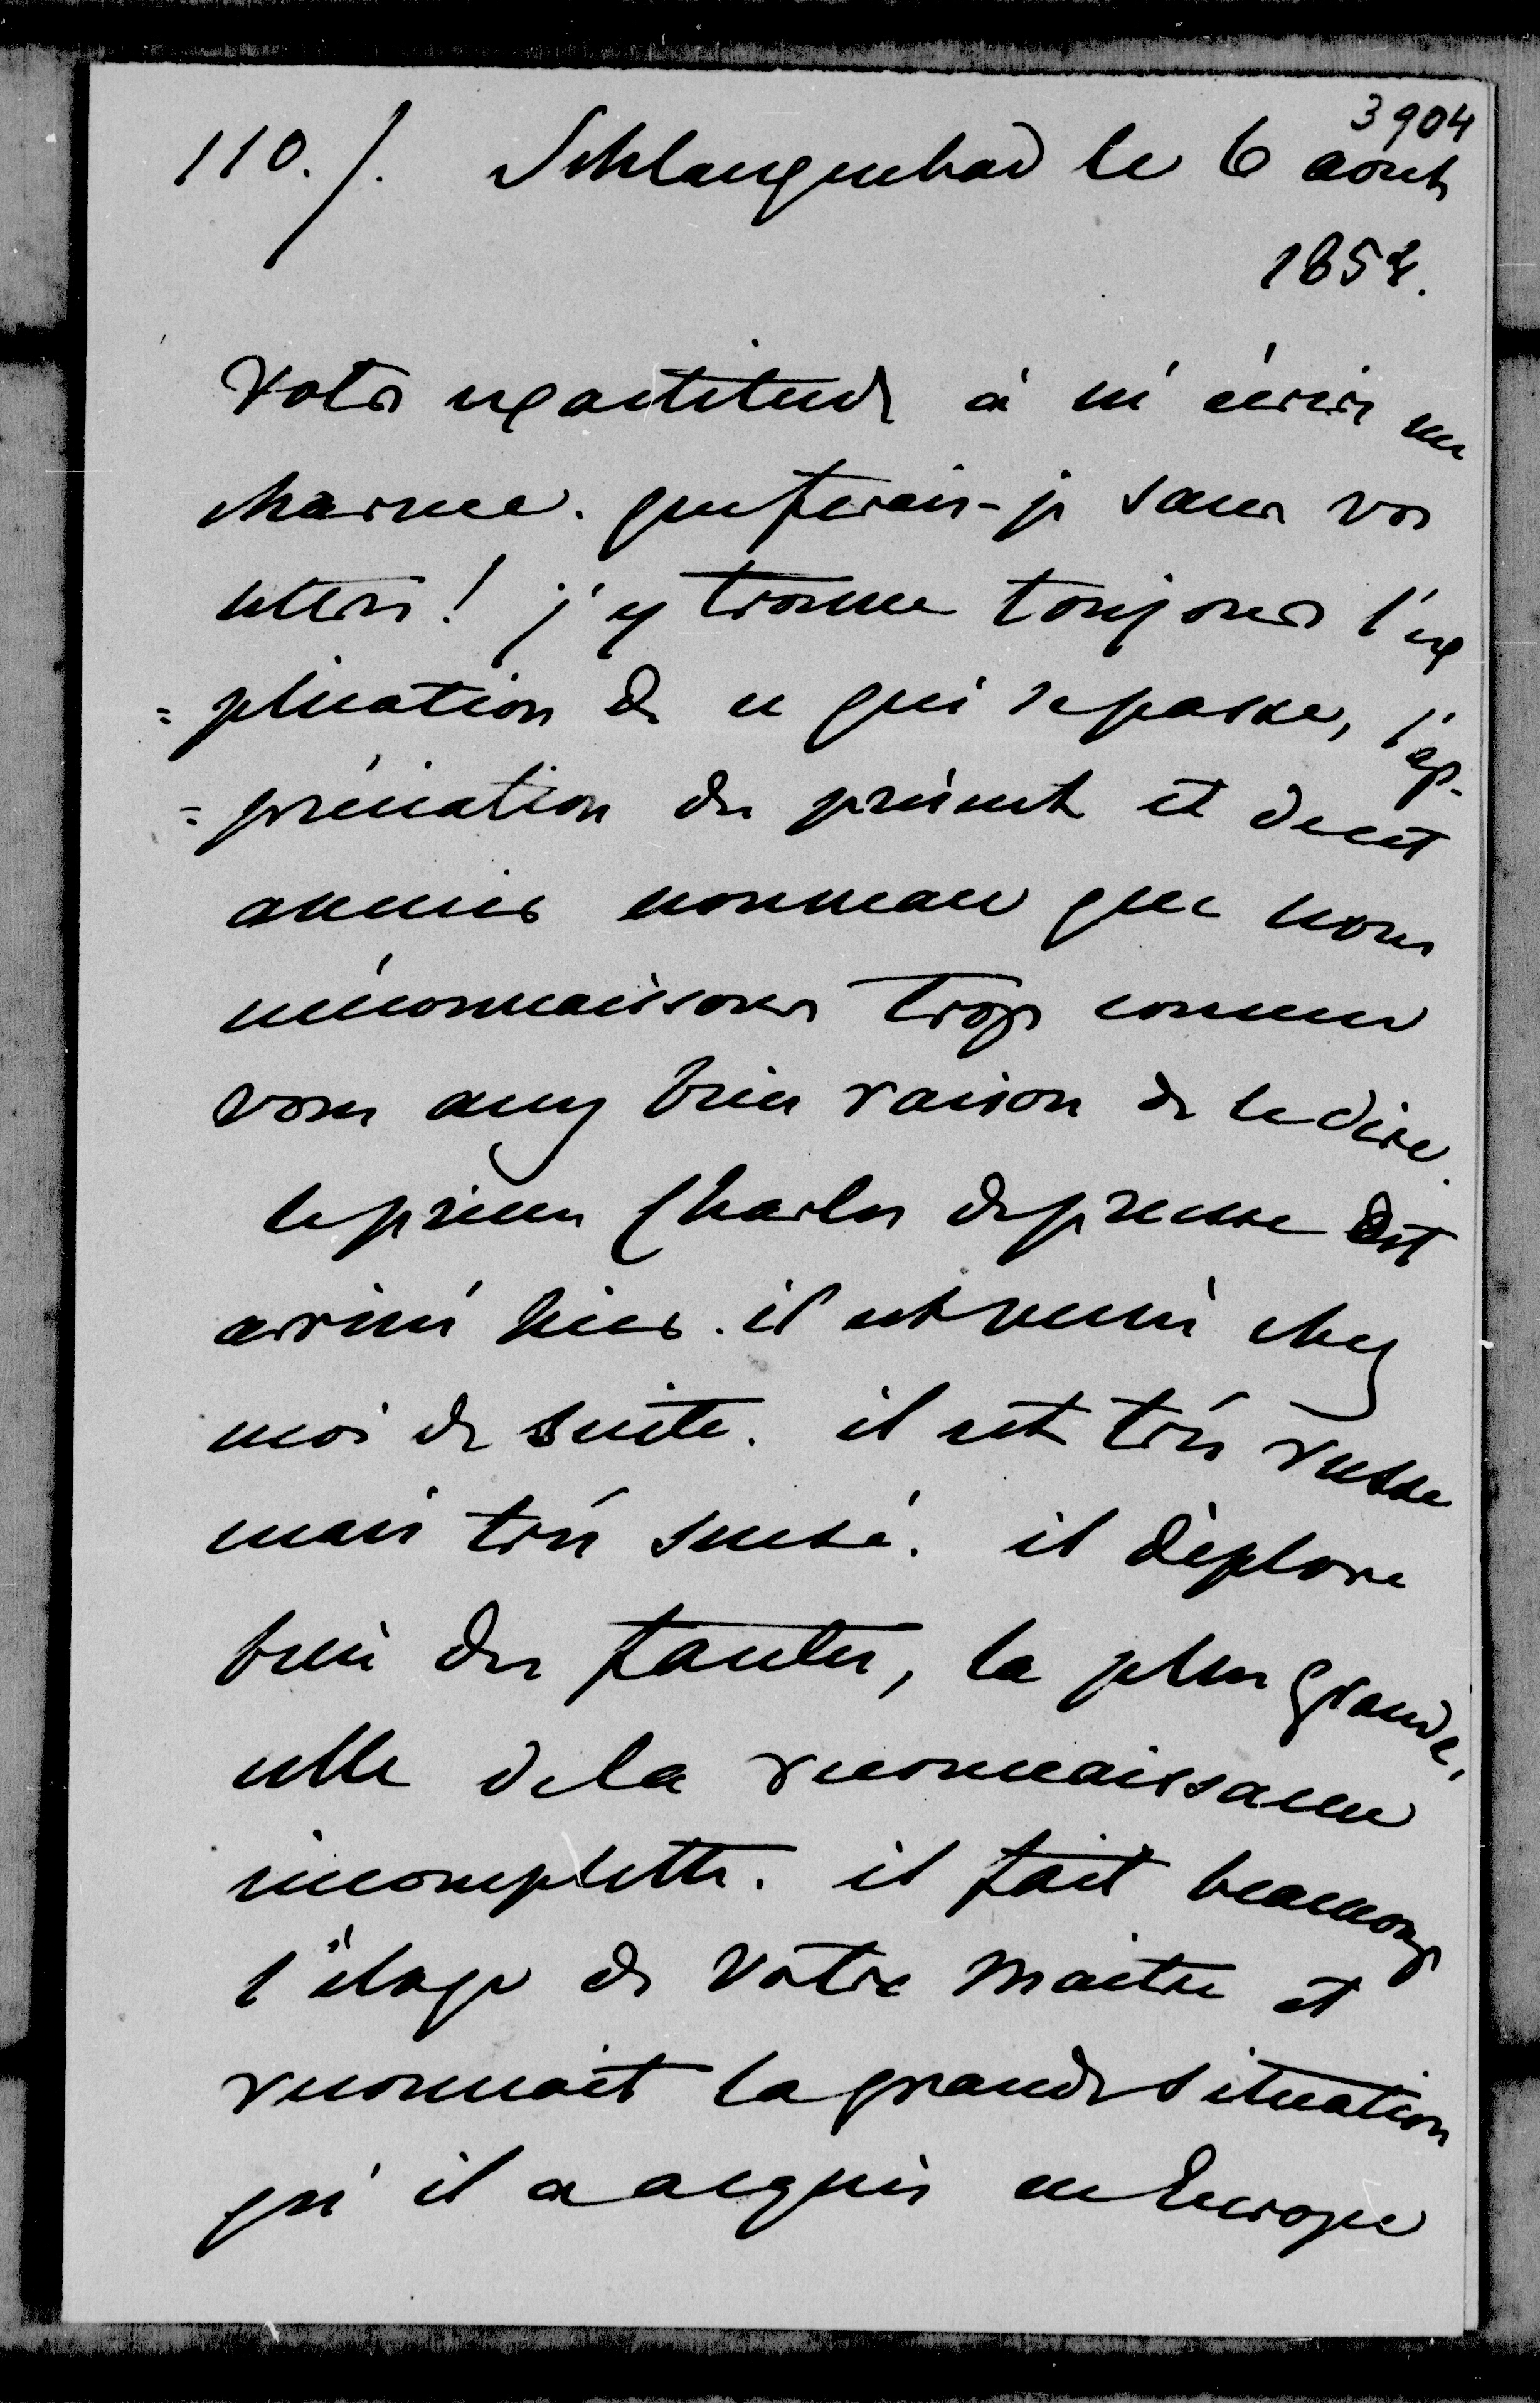 3904
110./. Schlangenbad le 6 aout
1852.
Votre exactitude à m'écrire me
charme. que ferais-je sans vos
lettres! j'y trouve toujours l'ex
=plication de ce qui se passe, l'ap-
=préciation du présent et de cet
ancien nouveau que nous
méconnaissons trop comme
vous avez bien raison de le dire.
le prince Charles de prusse est
arrivé hier. il est venu chez
moi de suite. il est très russe
mais très sensé. il déplore
bien des fautes, la plus grande,
celle de la reconnaissance
incomplette. il fait beaucoup
l'éloge de Votre Maitre et
reconnait la grande situation
qu'il a acquis en Europe